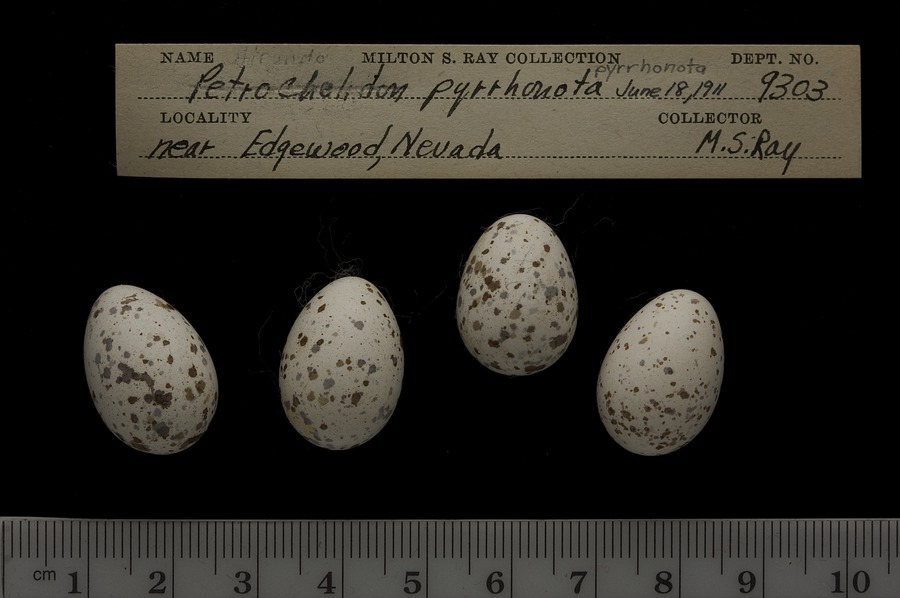 NAME Hirundo MILTON S. RAY COLLECTION DEPT. NO.
pyrrhonota
Petrochelidon pyrrhonota June 18, 1911 9303
LOCALITY COLLECTOR
near Edgewood, Nevada M.S. Ray
cm 1 2 3 4 5 6 7 8 9 10